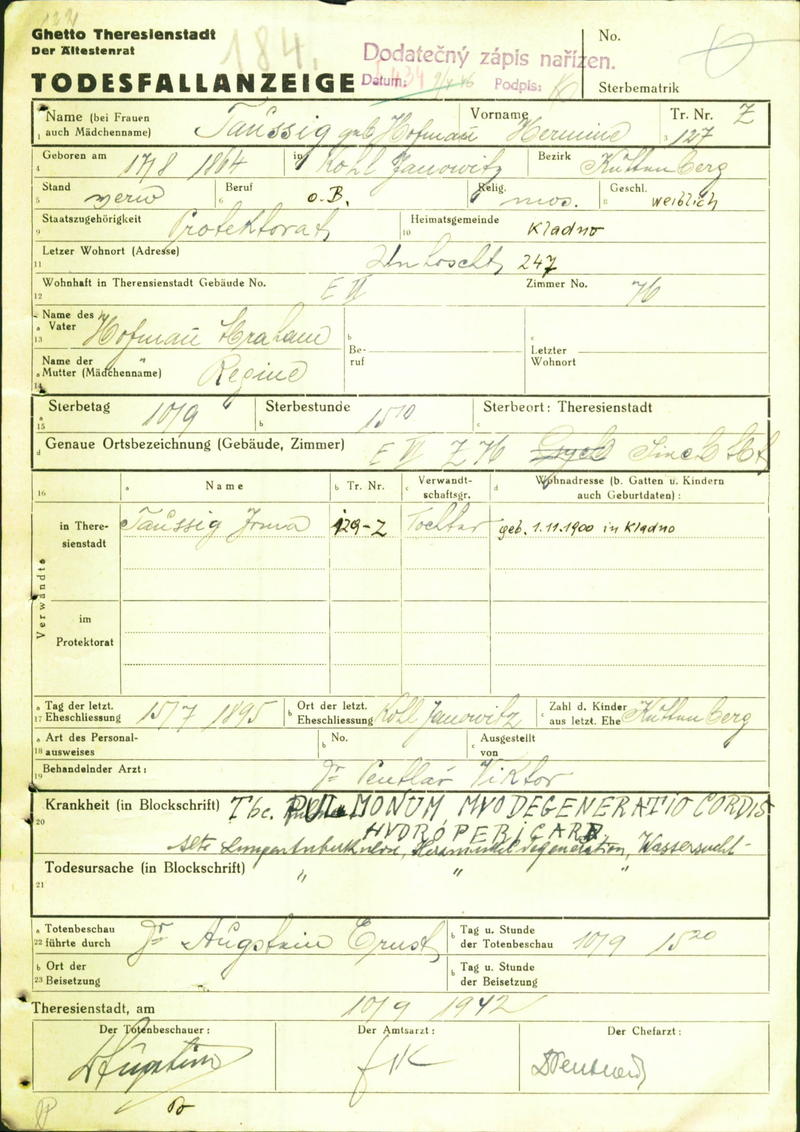 184.
Ghetto Theresienstadt
Der Ältestenrat
TODESFALLANZEIGE
Dodatečný zápis nařízen.
Datum: Podpis:
No.
Sterbematrik
Name (bei Frauen auch Mädchenname) Taussig geb. Hofman Vorname Hermine Tr. Nr. Z 127
1
3
4 Geboren am 17/8 1864 in Kohl Janowitz Bezirk Kuttenberg
5 Stand verw 6 Beruf o.B. Relig. mos. 8 Geschl. weiblich
9 Staatszugehörigkeit Protektorat 10 Heimatsgemeinde Kladno
11 Letzer Wohnort (Adresse) Unhoscht, 247
12 Wohnhaft in Therensienstadt Gebäude No. E VI Zimmer No. 76
13 a Name des Vater Hofman Abraham
b Beruf
c Letzter Wohnort
14 a Name der Mutter (Mädchenname) " Regine
15 a Sterbetag 10/9 b Sterbestunde 15 10 c Sterbeort: Theresienstadt
d Genaue Ortsbezeichnung (Gebäude, Zimmer) E VI Z 76
16 a Name b Tr. Nr. c Verwandtschaftsgr. d Wohnadresse (b. Gatten u. Kindern auch Geburtdaten):
Verwandte
in Theresienstadt Taussig Irma 129-Z Tochter geb. 1.11.1900 in Kladno
im Protektorat
17 a Tag der letzt. Eheschliessung 15/7 1895 b Ort der letzt. Eheschliessung Kohl Janowitz c Zahl d. Kinder aus letzt. Ehe Kuttenberg
18 a Art des Personalausweises b No. c Ausgestellt von
19 Behandelnder Arzt: Dr Viktor
20 Krankheit (in Blockschrift) Tbc. PULMONUM, MYODEGENERATIO CORDIS
HYDROPERICARD.
Alte Lungentuberkulose, Herzmuskeldegeneration, Wassersucht
21 Todesursache (in Blockschrift) " " "
22 a Totenbeschau führte durch Dr Augstein Ernst b Tag u. Stunde der Totenbeschau 10/9 15 20
23 b Ort der Beisetzung b Tag u. Stunde der Beisetzung
Theresienstadt, am 10/9 1942
Der Totenbeschauer: Der Amtsarzt: Der Chefarzt: